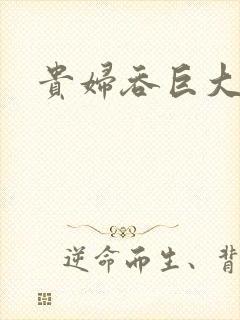 貴婦吞巨大
逆命而生、背